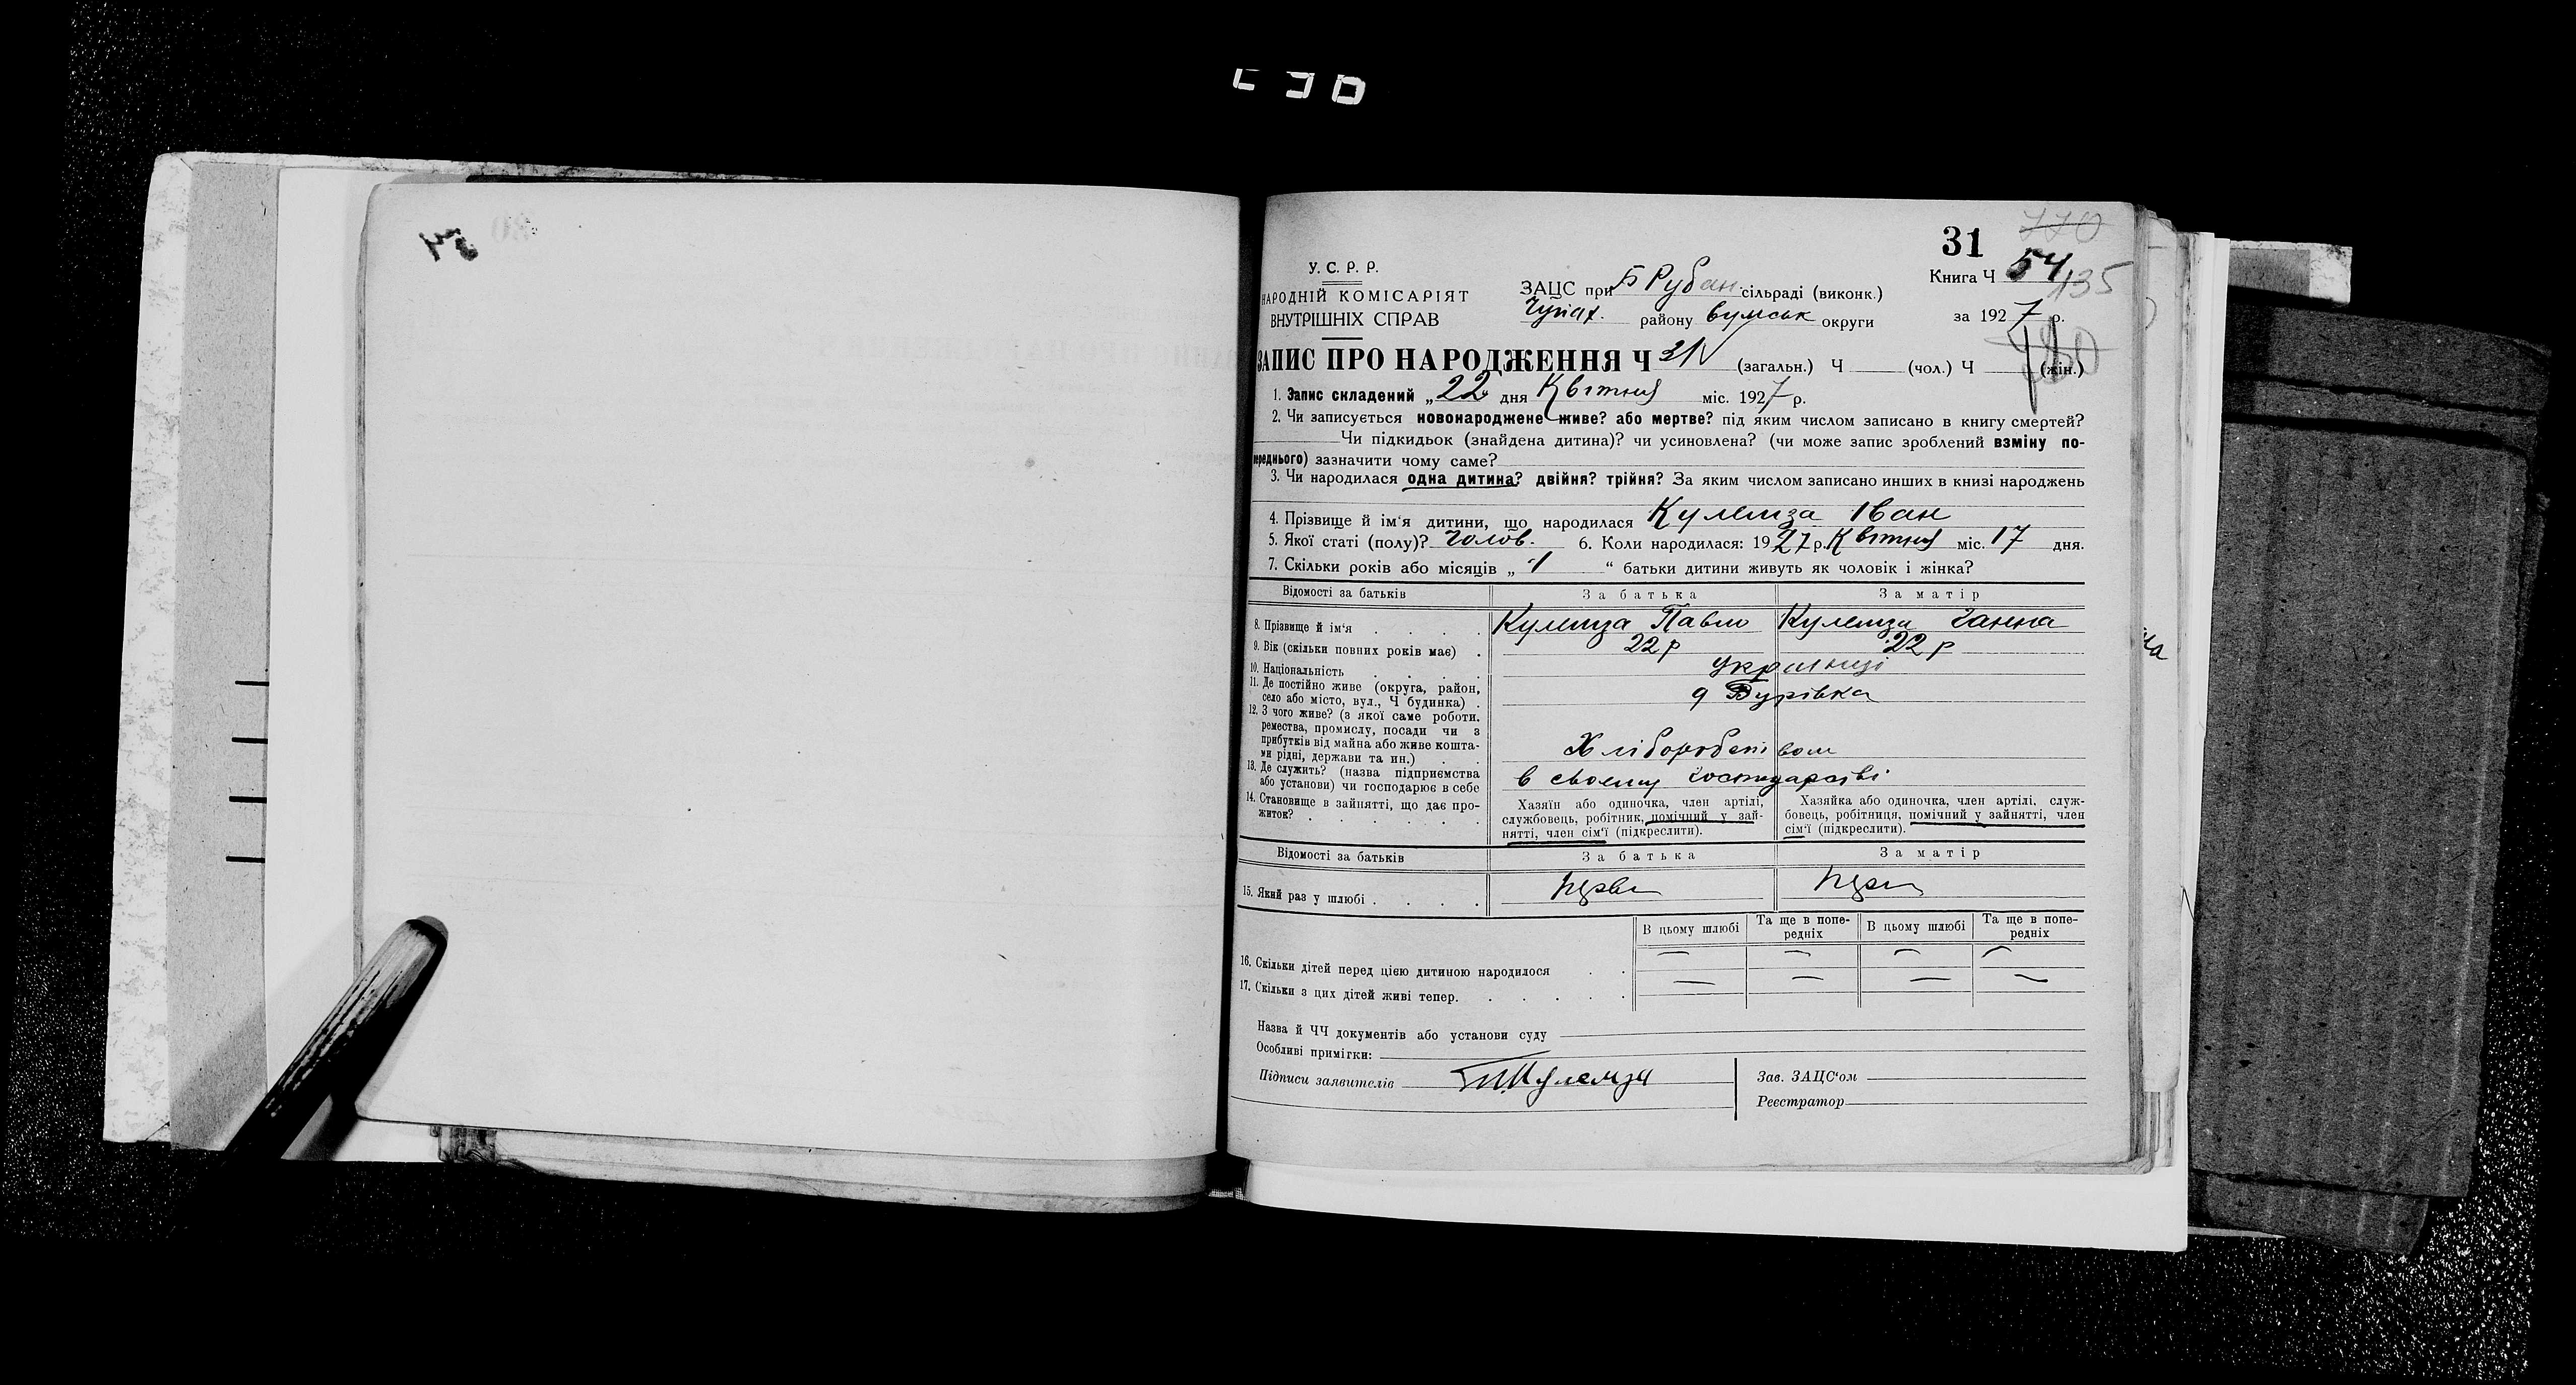 31
У. С. Р. Р.
НАРОДНІЙ КОМІСАРІЯТ
ВНУТРІШНІХ СПРАВ
ЗАЦС при Б Рубан. сільраді (виконк.)
Чупах. району Сумськ округи
Книга Ч 54
135
за 1927 р.
ЗАПИС ПРО НАРОДЖЕННЯ Ч 31 (загальн.) Ч (чол.) Ч (жін.)
1. Запис складений „22 дня Квітня міс. 1927 р.
2. Чи записується новонароджене живе? або мертве? під яким числом записано в книгу смертей?
Чи підкидьок (знайдена дитина)? чи усиновлена? (чи може запис зроблений взміну по-
переднього) зазначити чому саме?
3. Чи народилася одна дитина? двійня? трійня? За яким числом записано инших в книзі народжень
4. Прізвище й ім'я дитини, що народилася Кулемза Іван
5. Якої статі (полу)? Чолов. 6. Коли народилася: 1927 р. Квітня міс. 17 дня.
7. Скільки років або місяців „ 1 “ батьки дитини живуть як чоловік і жінка?
Відомості за батьків За батька За матір
8. Прізвище й ім'я Кулемза Павло Кулемза Ганна
9. Вік (скільки повних років має) 22 р 22 р
10. Національність Українці
11. Де постійно живе (округа, район,
село або місто, вул., Ч будинка)
12. З чого живе? (з якої саме роботи.
ремества, промислу, посади чи з
прибутків від майна або живе кошта-
ми рідні, держави та ин.) Хліборобством
13. Де служить? (назва підприємства
або установи) чи господарює в себе в своєму господарстві
14. Становище в зайнятті, що дає про-
житок?
Хазяїн або одиночка, член артілі,
службовець, робітник, помічний у зай-
нятті, член сім'ї (підкреслити).
Хазяйка або одиночка, член артілі, служ-
бовець, робітниця, помічний у зайнятті, член
сім'ї (підкреслити).
Відомості за батьків За батька За матір
15. Який раз у шлюбі
В цьому шлюбі Та ще в попе-
редніх В цьому шлюбі Та ще в попе-
редніх
16. Скільки дітей перед цією дитиною народилося — — — —
17. Скільки з цих дітей живі тепер. — — — —
Назва й ЧЧ документів або установи суду
Особливі примігки:
Підписи заявителів Кулемза
Зав. ЗАЦС'ом
Реєстратор